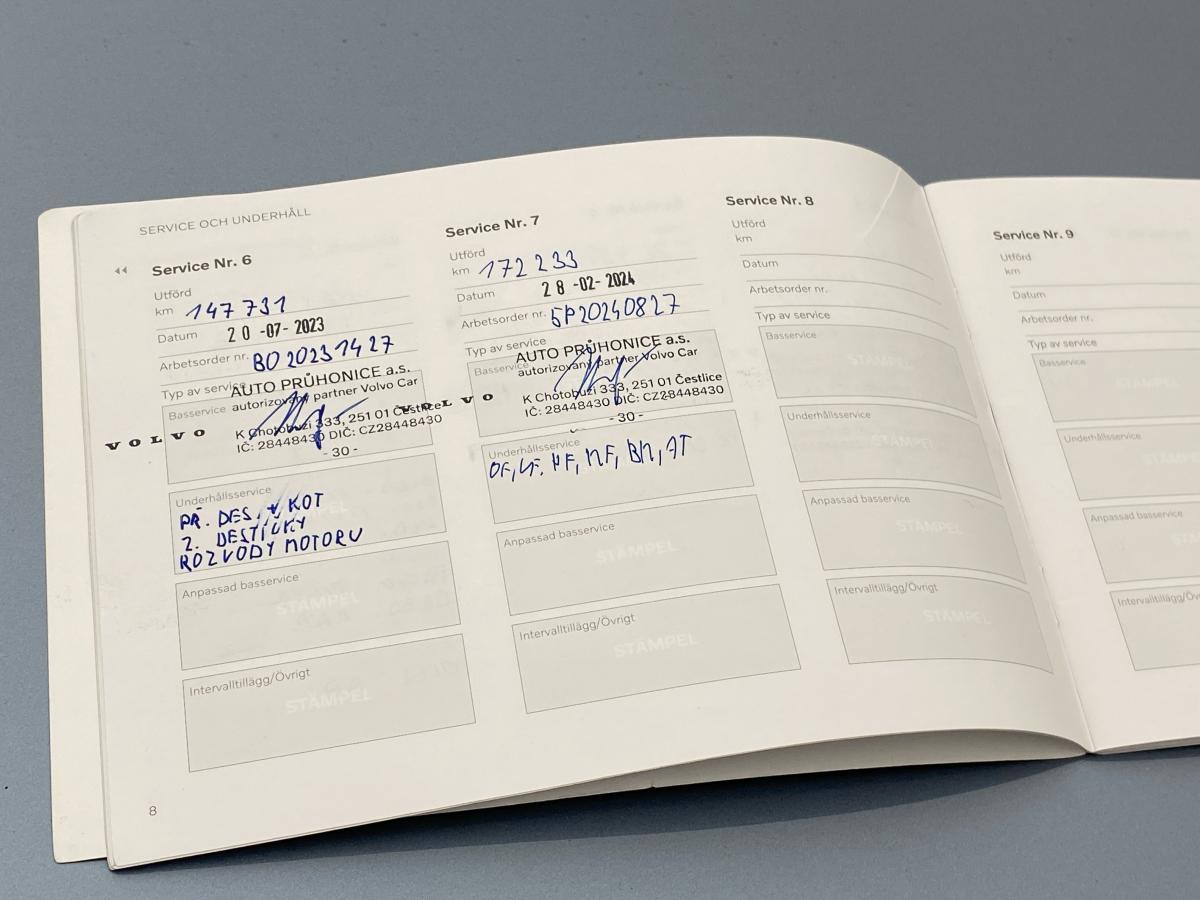 SERVICE OCH UNDERHÅLL
Service Nr. 6
Utförd
km 147 731
Datum 20 -07- 2023
Arbetsorder nr. BO 2023 1427
Typ av service
AUTO PRŮHONICE a.s.
Basservice autorizovaný partner Volvo Car
VOLVO K Chotobuzi 333, 251 01 Čestlice
IČ: 28448430 DIČ: CZ28448430
- 30 -
Underhållsservice
PŘ. DES. + KOT
2. DESTIČKY
ROZVODY MOTORU
Anpassad basservice
STÄMPEL
Intervalltillägg/Övrigt
STÄMPEL
8
Service Nr. 7
Utförd
km 172 233
Datum 28 -02- 2024
Arbetsorder nr. SP20240827
Typ av service
AUTO PRŮHONICE a.s.
Basservice autorizovaný partner Volvo Car
VOLVO K Chotobuzi 333, 251 01 Čestlice
IČ: 28448430 DIČ: CZ28448430
- 30 -
Underhållsservice
OF, VF, PF, KF, BK, AT
Anpassad basservice
STÄMPEL
Intervalltillägg/Övrigt
STÄMPEL
Service Nr. 8
Utförd
km
Datum
Arbetsorder nr.
Typ av service
Basservice
STÄMPEL
Underhållsservice
STÄMPEL
Anpassad basservice
STÄMPEL
Intervalltillägg/Övrigt
STÄMPEL
Service Nr. 9
Utförd
km
Datum
Arbetsorder nr.
Typ av service
Basservice
Underhållsservice
Anpassad basservice
Intervalltillägg/Öv